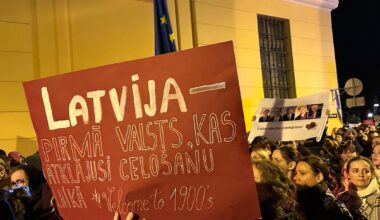 LATVIJA —
PIRMĀ VALSTS, KAS
ATKLĀJUSI CEĻOŠANU
LAIKĀ #Welcome to 1900's